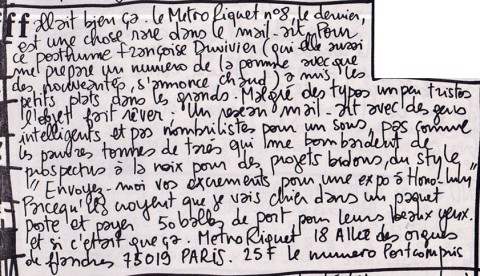 ffallait bien ça. Le Metro Riquet n°8, le dernier,
est une chose rare dans le mail-art. Pour
ce posthume Françoise Duvivier (qui elle aussi
me prepare un numero de la pomme avec que
des nouveautés, s'annonce chaud) a mis les
petits plats dans les grands. Malgré des typos un peu tristes
l'objet fait rêver : Un reseau mail-art avec des gens
intelligents et pas nombrilistes pour un sous, pas comme
les pauvres tonnes de tarés qui me bombardent de
prospectus à la noix pour des projets bidons, du style
"Envoyez-moi vos excrements pour une expo à Honolulu"
Parcequ'ils croyent que je vais chier dans un paquet
poste et payer 50 balles de port pour leurs beaux yeux.
et si c'était que ça. Metro Riquet 18 Allée des orgues
de flandres 75019 PARIS. 25F le numero Portcompris